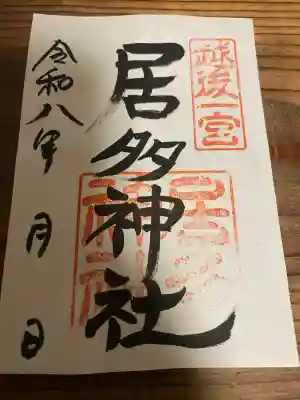 越後一宮
居多神社
令和八年 月 日